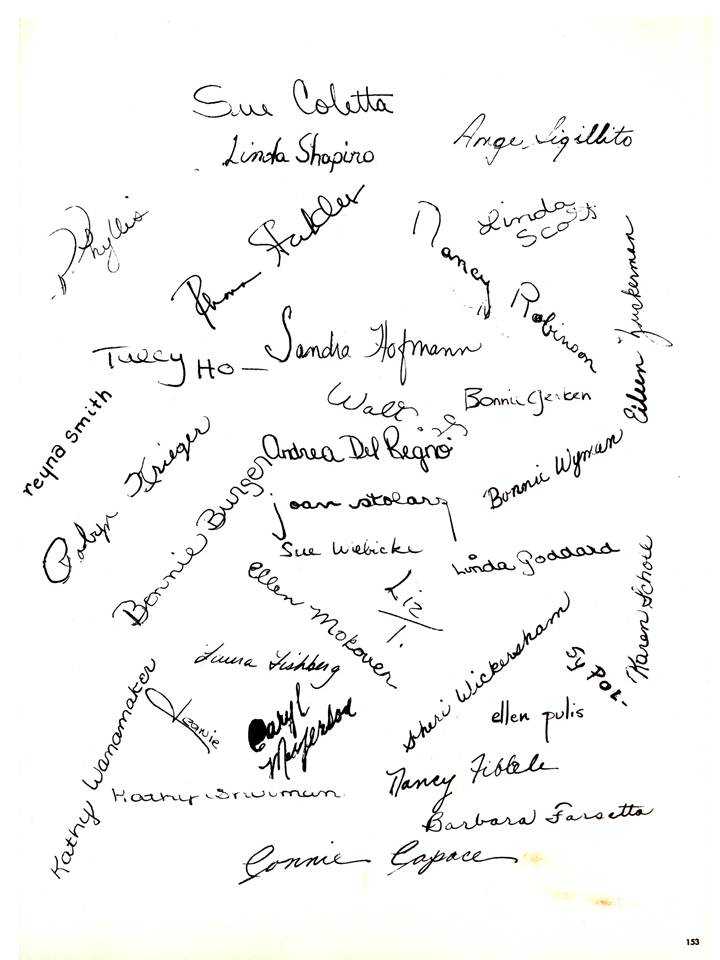 Sue Coletta
Linda Shapiro
Ange Sigillito
Phyllis
Linda
Scott
Nancy Robinson
Eileen Zuckerman
Sandra Hofmann
HO-
Walt
Bonnie Gerken
reyna smith
Robyn Krieger
Andrea Del Regno
Bonnie Burger
Bonnie Wyman
joan stolarz
Sue Wiebicke
Linda Goddard
ellen Mokover
Liz
Karen Schore
Laura Fishberg
Sheri Wickersham
sy POL-
Kathy Wanamaker
Caryl
ellen pulis
Nancy
Kathy
Barbara Farsetta
Connie Capace
153